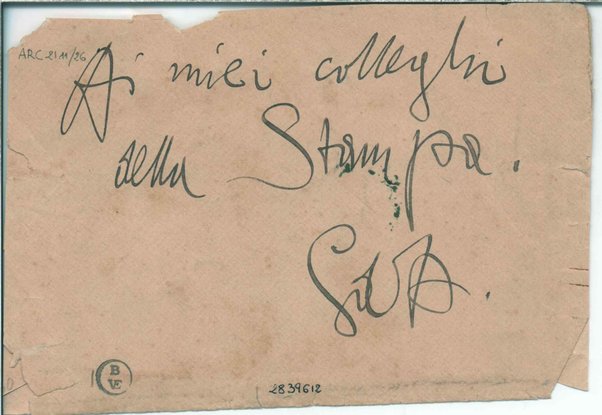 ARC 21 11/26
Ai miei colleghi
della Stampa.
BVE
2839612